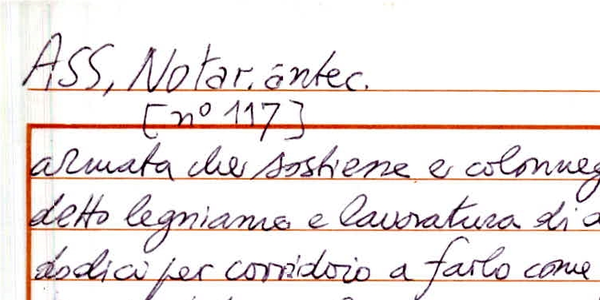 ASS, Notar. antec.
[nº 117]
armata che sostiene e colonneg
detto legniame e lavoratura di d
dodici per corridoio a farlo come